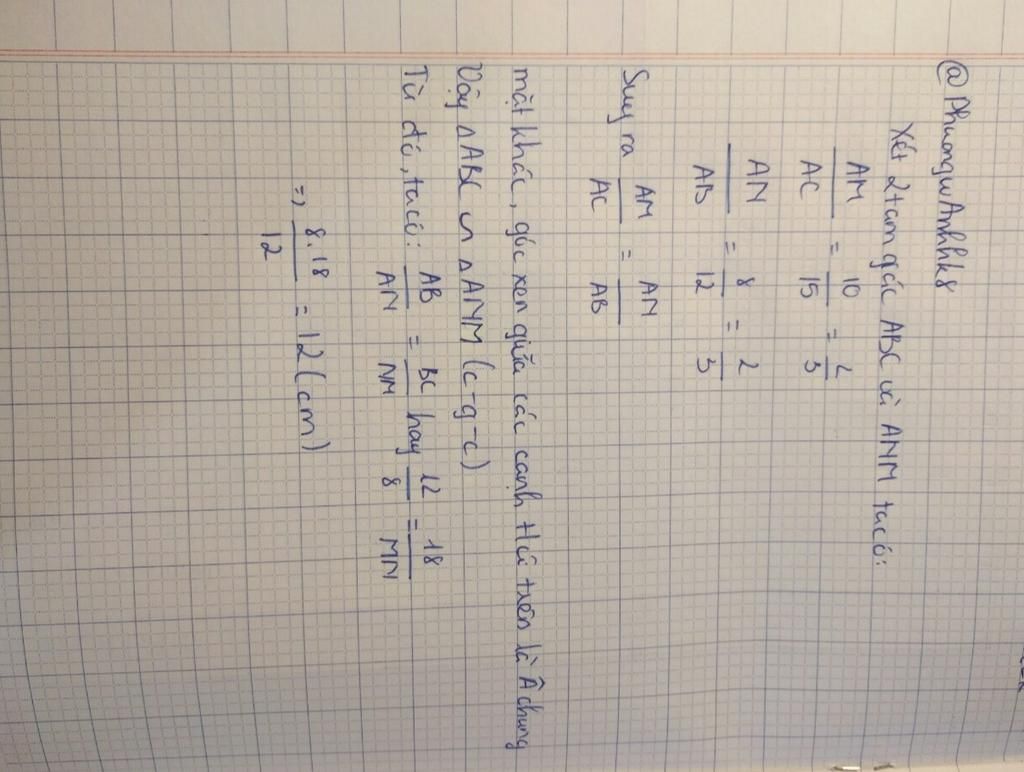 @PhuongwAnhhk8
Xét 2 tam gác ABC và ANM ta có:
AM/AC = 10/15 = 2/3
AN/AB = 8/12 = 2/3
Suy ra AM/AC = AN/AB
mặt khác, góc xen giữa các cạnh tlứ trên là Â chung
Vậy △ABC ∽ △ANM (c-g-c)
Từ đó, ta có: AB/AN = BC/NM hay 12/8 = 18/MN
=> 8.18/12 = 12 (cm)